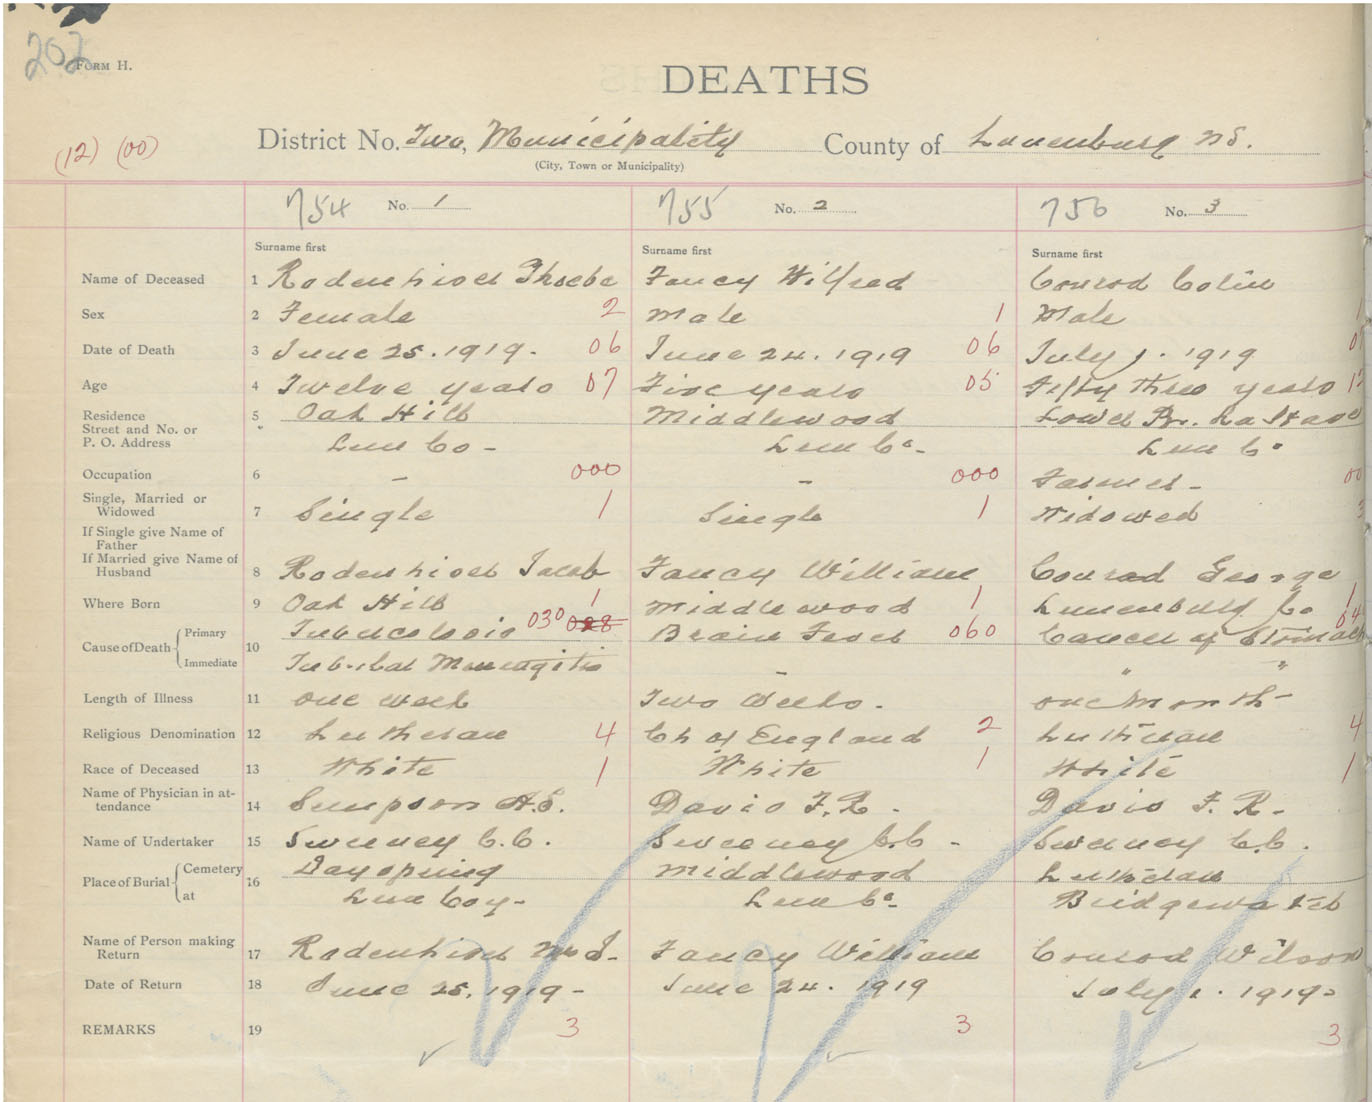 202
FORM H.
DEATHS
(12) (00)
District No. Two, Municipality County of Lunenburg NS.
(City, Town or Municipality)
754 No. 1 755 No. 2 756 No. 3
Surname first Surname first Surname first
Name of Deceased 1 Rodenhiser Phoebe Fancy Wilfred Conrad Colin
Sex 2 Female 2 Male 1 Male 1
Date of Death 3 June 25. 1919. 06 June 24. 1919 06 July 1. 1919
Age 4 Twelve years 07 Five years 05 Fifty three years
Residence 5 Oak Hill Middlewood Lower Br. LaHave
Street and No. or
P. O. Address Lun Co - Lun Co. Lun Co
Occupation 6 - 000 - 000 Farmer -
Single, Married or
Widowed 7 Single 1 Single 1 Widowed
If Single give Name of
Father
If Married give Name of
Husband 8 Rodenhiser Jacob Fancy William Conrad George
Where Born 9 Oak Hill 1 Middlewood 1 Lunenburg Co 1
Cause of Death Primary 10 Tuberculosis 030 028 Brain Fever 060 Cancer of Stomach 64
Immediate Tubercular Meningitis - " "
Length of Illness 11 one week Two Weeks. one Month -
Religious Denomination 12 Lutheran 4 Ch of England 2 Lutheran 4
Race of Deceased 13 White 1 White 1 White 1
Name of Physician in at-
tendance 14 Simpson H.E. Davis F. R. Davis F. R.
Name of Undertaker 15 Sweeney C. C. Sweeney C.C - Sweeney C.C.
Place of Burial Cemetery 16 Dayspring Middlewood Lutheran
at Lun Coy - Lun Co. Bridgewater
Name of Person making
Return 17 Rodenhiser Mrs J. Fancy William Conrad Wilson
Date of Return 18 June 25, 1919 - June 24. 1919 July 1. 1919
REMARKS 19 3 3 3